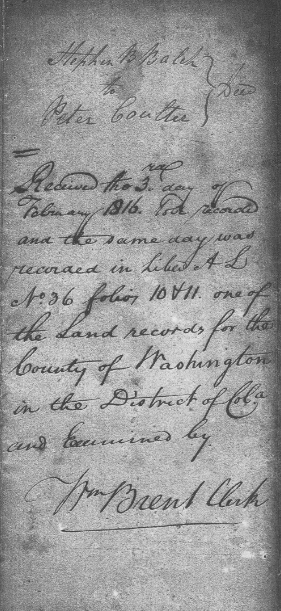 Stephen B Balch
to
Peter Coulter
Deed
Received the 3rd day of
February 1816. To be recorded
and the same day was
recorded in Liber A L
No. 36 folios 10 & 11. one of
the Land records for the
County of Washington
in the District of Cola
and Examined by
Wm Brent Clerk